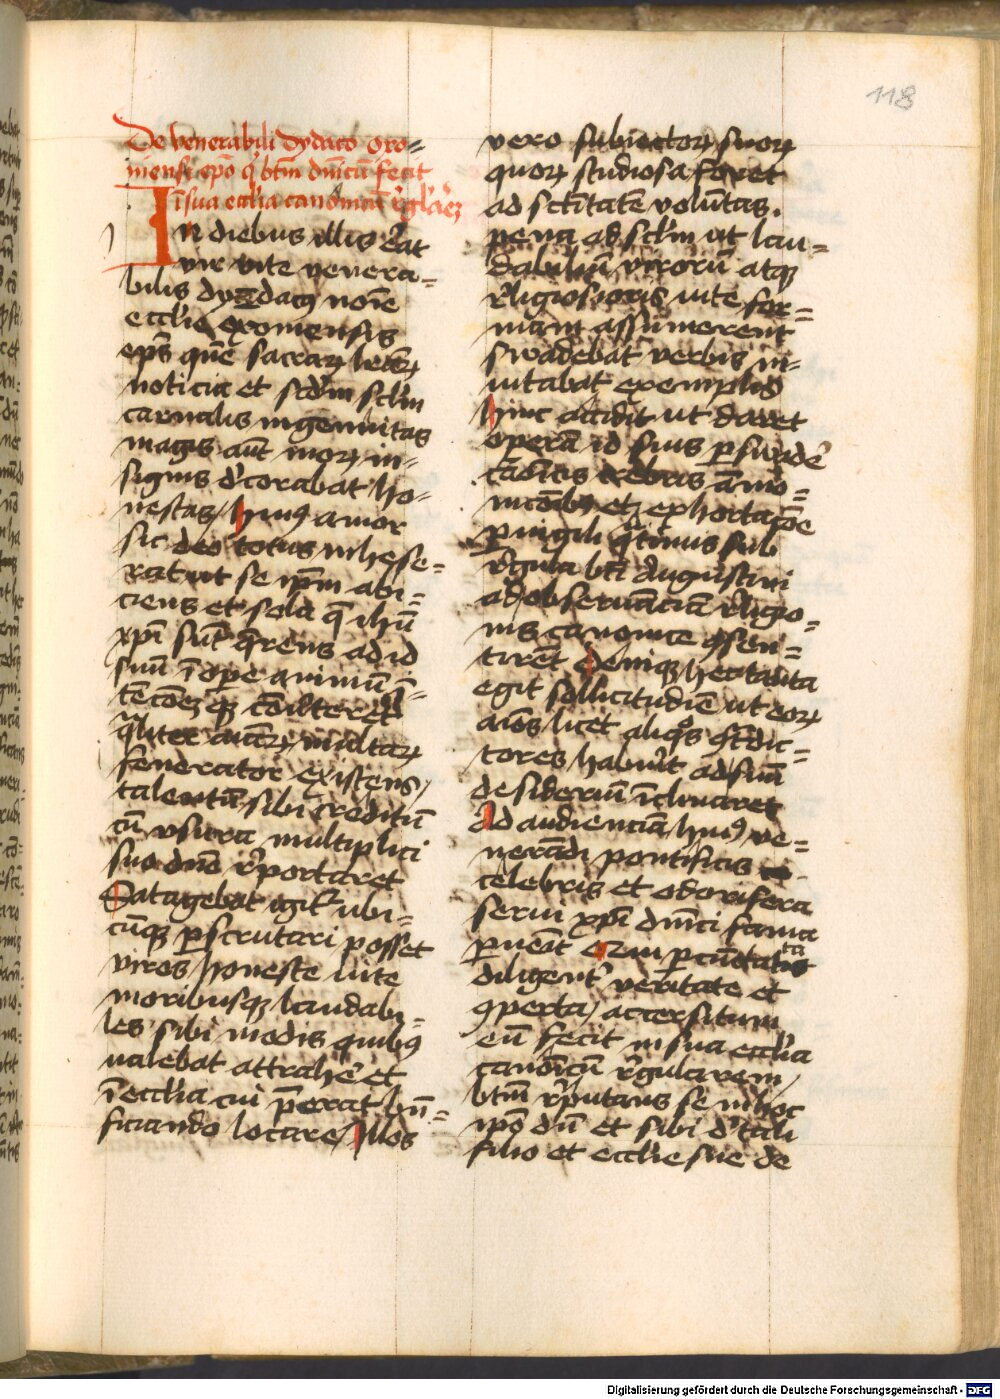 118
De venerabili dydaco oxo-
mensi epo q btm dnicu fecit
i sua ecclia canonicu rglare
In diebus illis erat
vir vite venera-
bilis dydacus noie
ecclie exomensis
eps que sacrar litterar
noticia et scdm sclm
carnalis ingenuitas
magis aut mor in-
signis decorabat ho-
nestas / huius amor
sic deo totus inhese-
rat ut se ipm abi-
ciens et sola que ihu
xpi sunt querens ad id
suu
qliter aiar multar
fenerator existens /
talentu sibi creditu
cu usura multiplici
suo dno reportaret
Satagebat igitur ubi-
cuq perscrutari posset
viros honeste vite
moribusq laudabi-
les sibi modis quibus
valebat attrahere et
i ecclia cui preerat bn-
ficiando locare / Illos
vero subiector suor
quor studiosa foret
ad sctitate voluntas.
laudabiliu viroru atq
religiosioris vite for-
mam assumerent
swadebat verbis in-
vitabat exemplis
hinc accidit ut daret
opera id suis persuadere
canonicis crebris amo-
nicoibus et exhortacoe
pervigili qtinus sub
regula bti Augustini
ad observancia religio-
nis canonice consen-
tirent Deniq hec tanta
egit sollicitudine ut eor
aios licet aliqos contradic-
tores habuerit ad suu
desideriu inclinaret
Ad audiencia huius ve-
nerandi pontificis
celebris et odorifera
servi xpi dnici fama
pervenit
diligenter veritate et
comperta / accersitum
eum fecit in sua ecclia
canonicu regularem /
btm reputans se in hoc
ipo dum et sibi de tali
filio et ecclie sue de
Digitalisierung gefördert durch die Deutsche Forschungsgemeinschaft - DFG